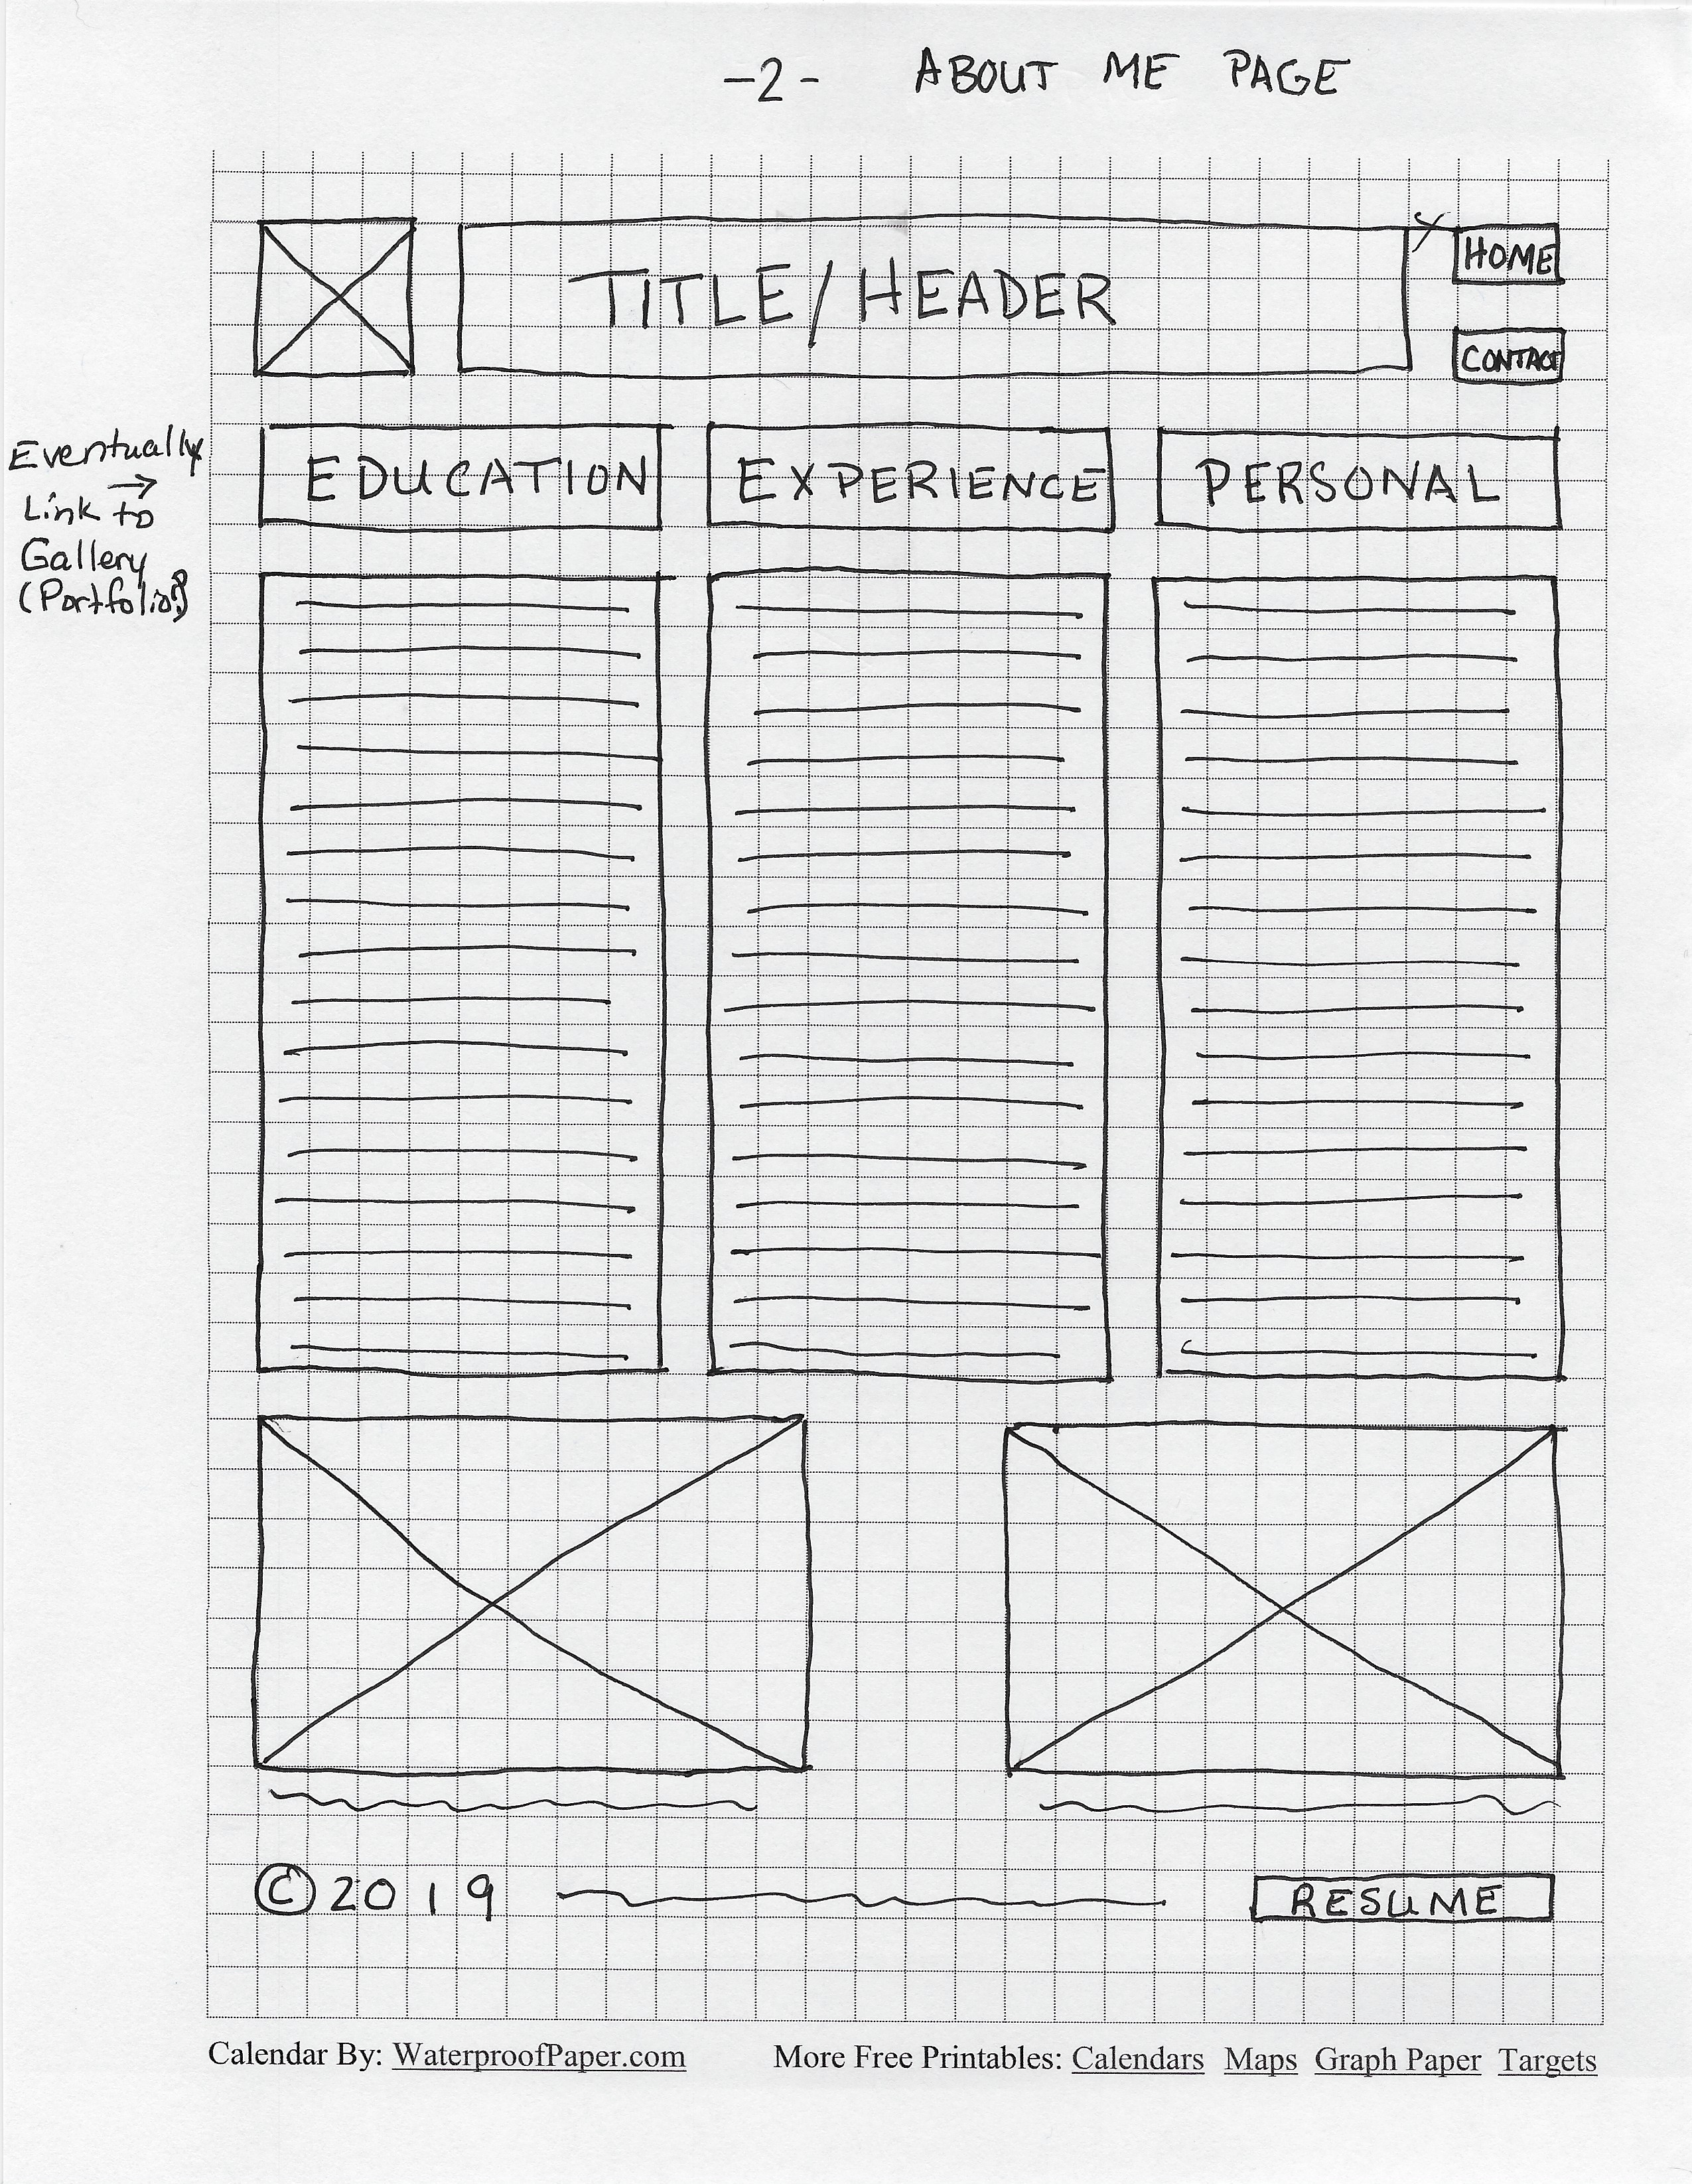 -2- ABOUT ME PAGE
TITLE/HEADER
HOME
CONTACT
Eventually
Link to
Gallery
(Portfolio?)
EDUCATION
EXPERIENCE
PERSONAL
©2019
RESUME
Calendar By: WaterproofPaper.com
More Free Printables: Calendars Maps Graph Paper Targets